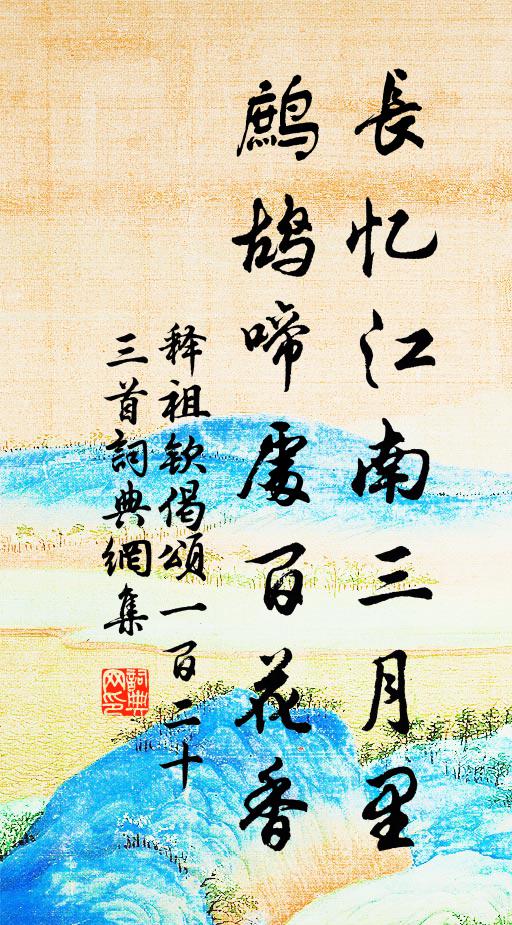 長忆江南三月里
鹧鸪啼處百花香
释祖钦偈頌一百二十
三首詞典網集
詞典网印